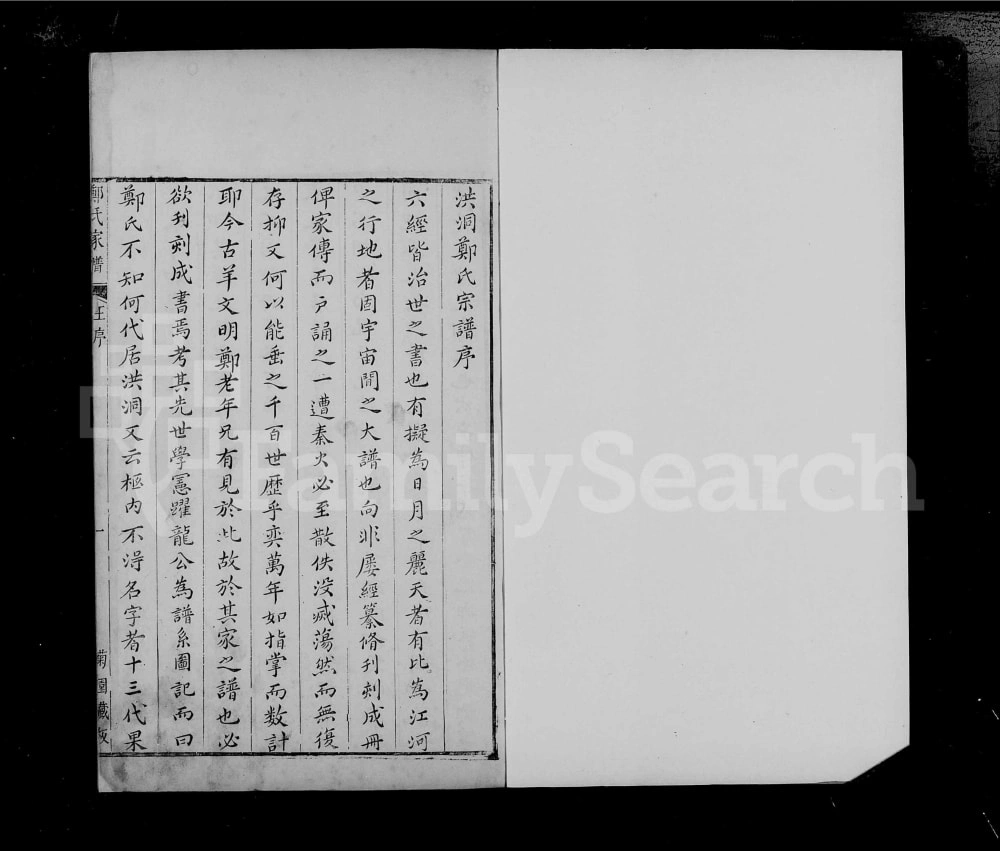 洪洞鄭氏宗譜序
六經皆治世之書也有擬為日月之麗天者有比為江河
之行地者固宇宙間之大譜也向非屡經纂脩刋刺成冊
俾家傳而戶誦之一遭秦火必至散佚没滅蕩然而無復
存抑又何以能垂之千百世歷乎奕萬年如指掌而数計
耶今古羊文明鄭老年兄有見於此故於其家之譜也必
欲刋刻成書焉考其先世學憲躍龍公為譜系圖記而曰
鄭氏不知何代居洪洞又云柩内不淂名字者十三代果
鄭氏家譜 王序 一 蘭圃藏板
FamilySearch